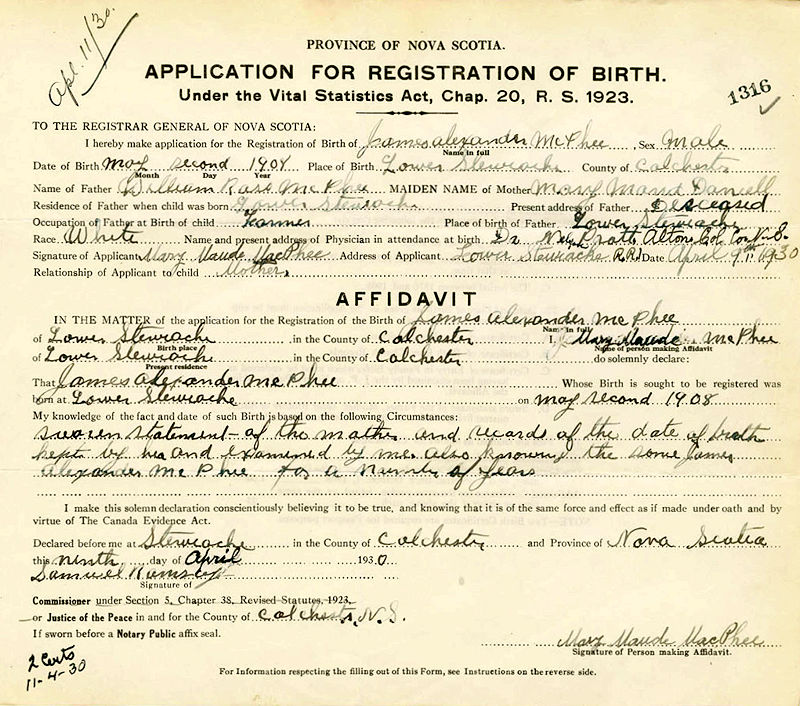 Apl. 11/30.
PROVINCE OF NOVA SCOTIA.
APPLICATION FOR REGISTRATION OF BIRTH.
Under the Vital Statistics Act, Chap. 20, R. S. 1923.
1316
TO THE REGISTRAR GENERAL OF NOVA SCOTIA:
I hereby make application for the Registration of Birth of James alexander McPhee, Sex Male
Name in full
Date of Birth may second 1908 Place of Birth Lower Stewiacke County of Colchester
Month Day Year
Name of Father William Ross McPhee MAIDEN NAME of Mother Mary Maud
Residence of Father when child was born Lower Stewiacke Present address of Father Desceased
Occupation of Father at Birth of child Farmer Place of birth of Father Lower Stewiacke
Race White Name and present address of Physician in attendance at birth Dr Alton Col. Co. N.S.
Signature of Applicant Mary Maude MacPhee Address of Applicant Lower Stewiacke R.R.1 Date April 9th 1930
Relationship of Applicant to child Mother
AFFIDAVIT
IN THE MATTER of the application for the Registration of the Birth of James Alexander McPhee
Name in full
of Lower Stewiacke in the County of Colchester I, Mary Maude McPhee
Birth place Name of person making Affidavit
of Lower Stewiacke in the County of Colchester do solemnly declare:
Present residence
That James Alexander McPhee Whose Birth is sought to be registered was
born at Lower Stewiacke on may second 1908
My knowledge of the fact and date of such Birth is based on the following Circumstances:
sworn statement of the mother and records of the date of birth
kept by her and examined by me. also knowing the same James
Alexander McPhee for a number of years
I make this solemn declaration conscientiously believing it to be true, and knowing that it is of the same force and effect as if made under oath and by
virtue of The Canada Evidence Act.
Declared before me at Stewiacke in the County of Colchester and Province of Nova Scotia
this ninth day of April 1930
Samuel
Signature of
Commissioner under Section 5, Chapter 38, Revised Statutes, 1923.
or Justice of the Peace in and for the County of Colchester, N.S.
If sworn before a Notary Public affix seal.
Mary Maude MacPhee
Signature of Person making Affidavit.
2 Certs
11-4-30
For Information respecting the filling out of this Form, see Instructions on the reverse side.